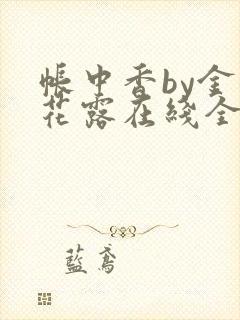 帐中香by金
花露在线全
蓝鸢